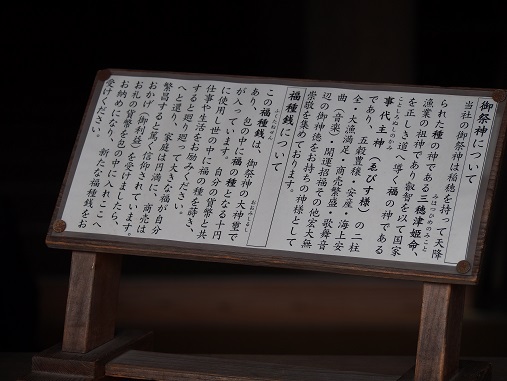 御祭神について
当社の御祭神は稲穂を持って天降
られた種の神である三穂津姫命、
みほつひめのみこと
漁業の祖神であり叡智を以て国家
を正しき道へ導く、福の神である
ことしろぬしのかみ
事代主神(ゑびす様)の二柱
であり、五穀豊穣・安産・海上安
全・大漁満足・商売繁盛・歌舞音
曲(音楽)・開運招福その他宏大無
辺の御神徳をお持ちの神様として
崇敬を集めております。
福種銭について
ふくたねせん
この福種銭は、御祭神の大神室で
あり、包の中に福の種となる十円
が入っています。自分の貨幣と共
に使用し世の中に福の種を蒔き、
仕事や生活をお励みください。
すると廻り廻って大きな福が自分
へと還り、家庭は円満に、商売は
繁昌すると篤く信仰されています。
おかげ(御利益)を受けましたら、
お礼の貨幣を包の中に入れここへ
お納めになり、新たな福種銭をお
受けください。